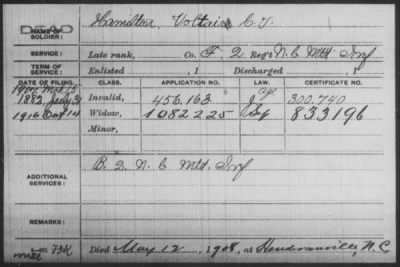 DEAD
NAME OF SOLDIER: Hamilton, Voltaire C. V.
SERVICE: Late rank, Co. F, 2 Reg't N.C. Mtd. Inf
TERM OF SERVICE: Enlisted , 1 Discharged , 1
DATE OF FILING. CLASS. APPLICATION NO. LAW. CERTIFICATE NO.
1882 July 31 Invalid, 456.163 300.740
1916 Oct 14 Widow, 1082225 833196
Minor,
ADDITIONAL SERVICES: B. 2. N. C. Mtd. Inf
REMARKS:
Died May 12, 1908, at Hendersonville, N.C.